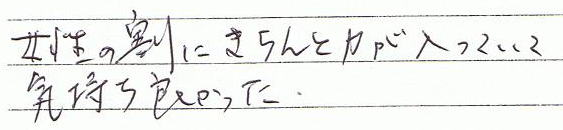 女性の割にきちんと力が入っていて
気持ち良かった.